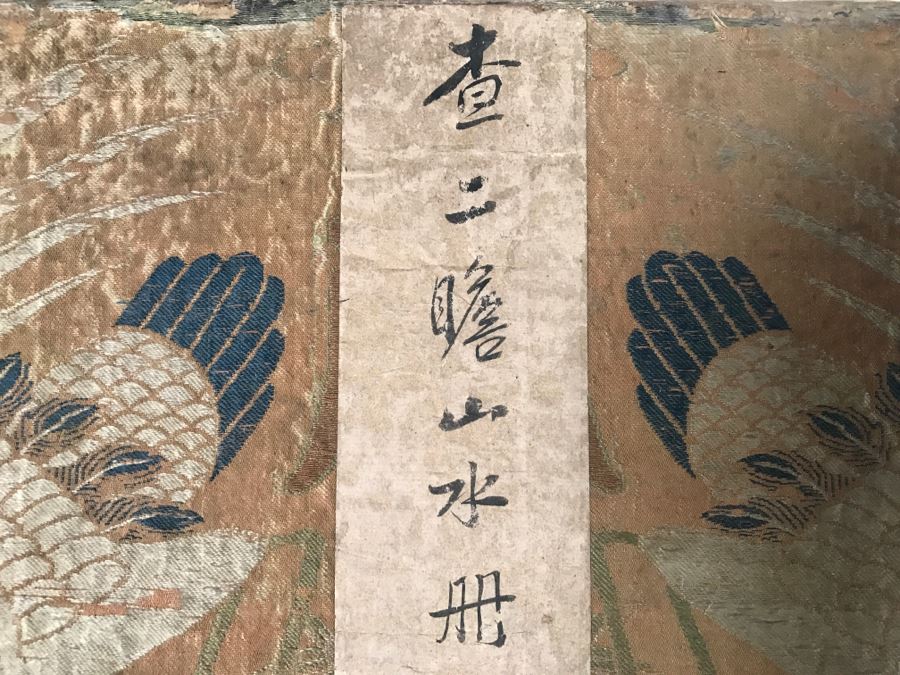 查二瞻山水册